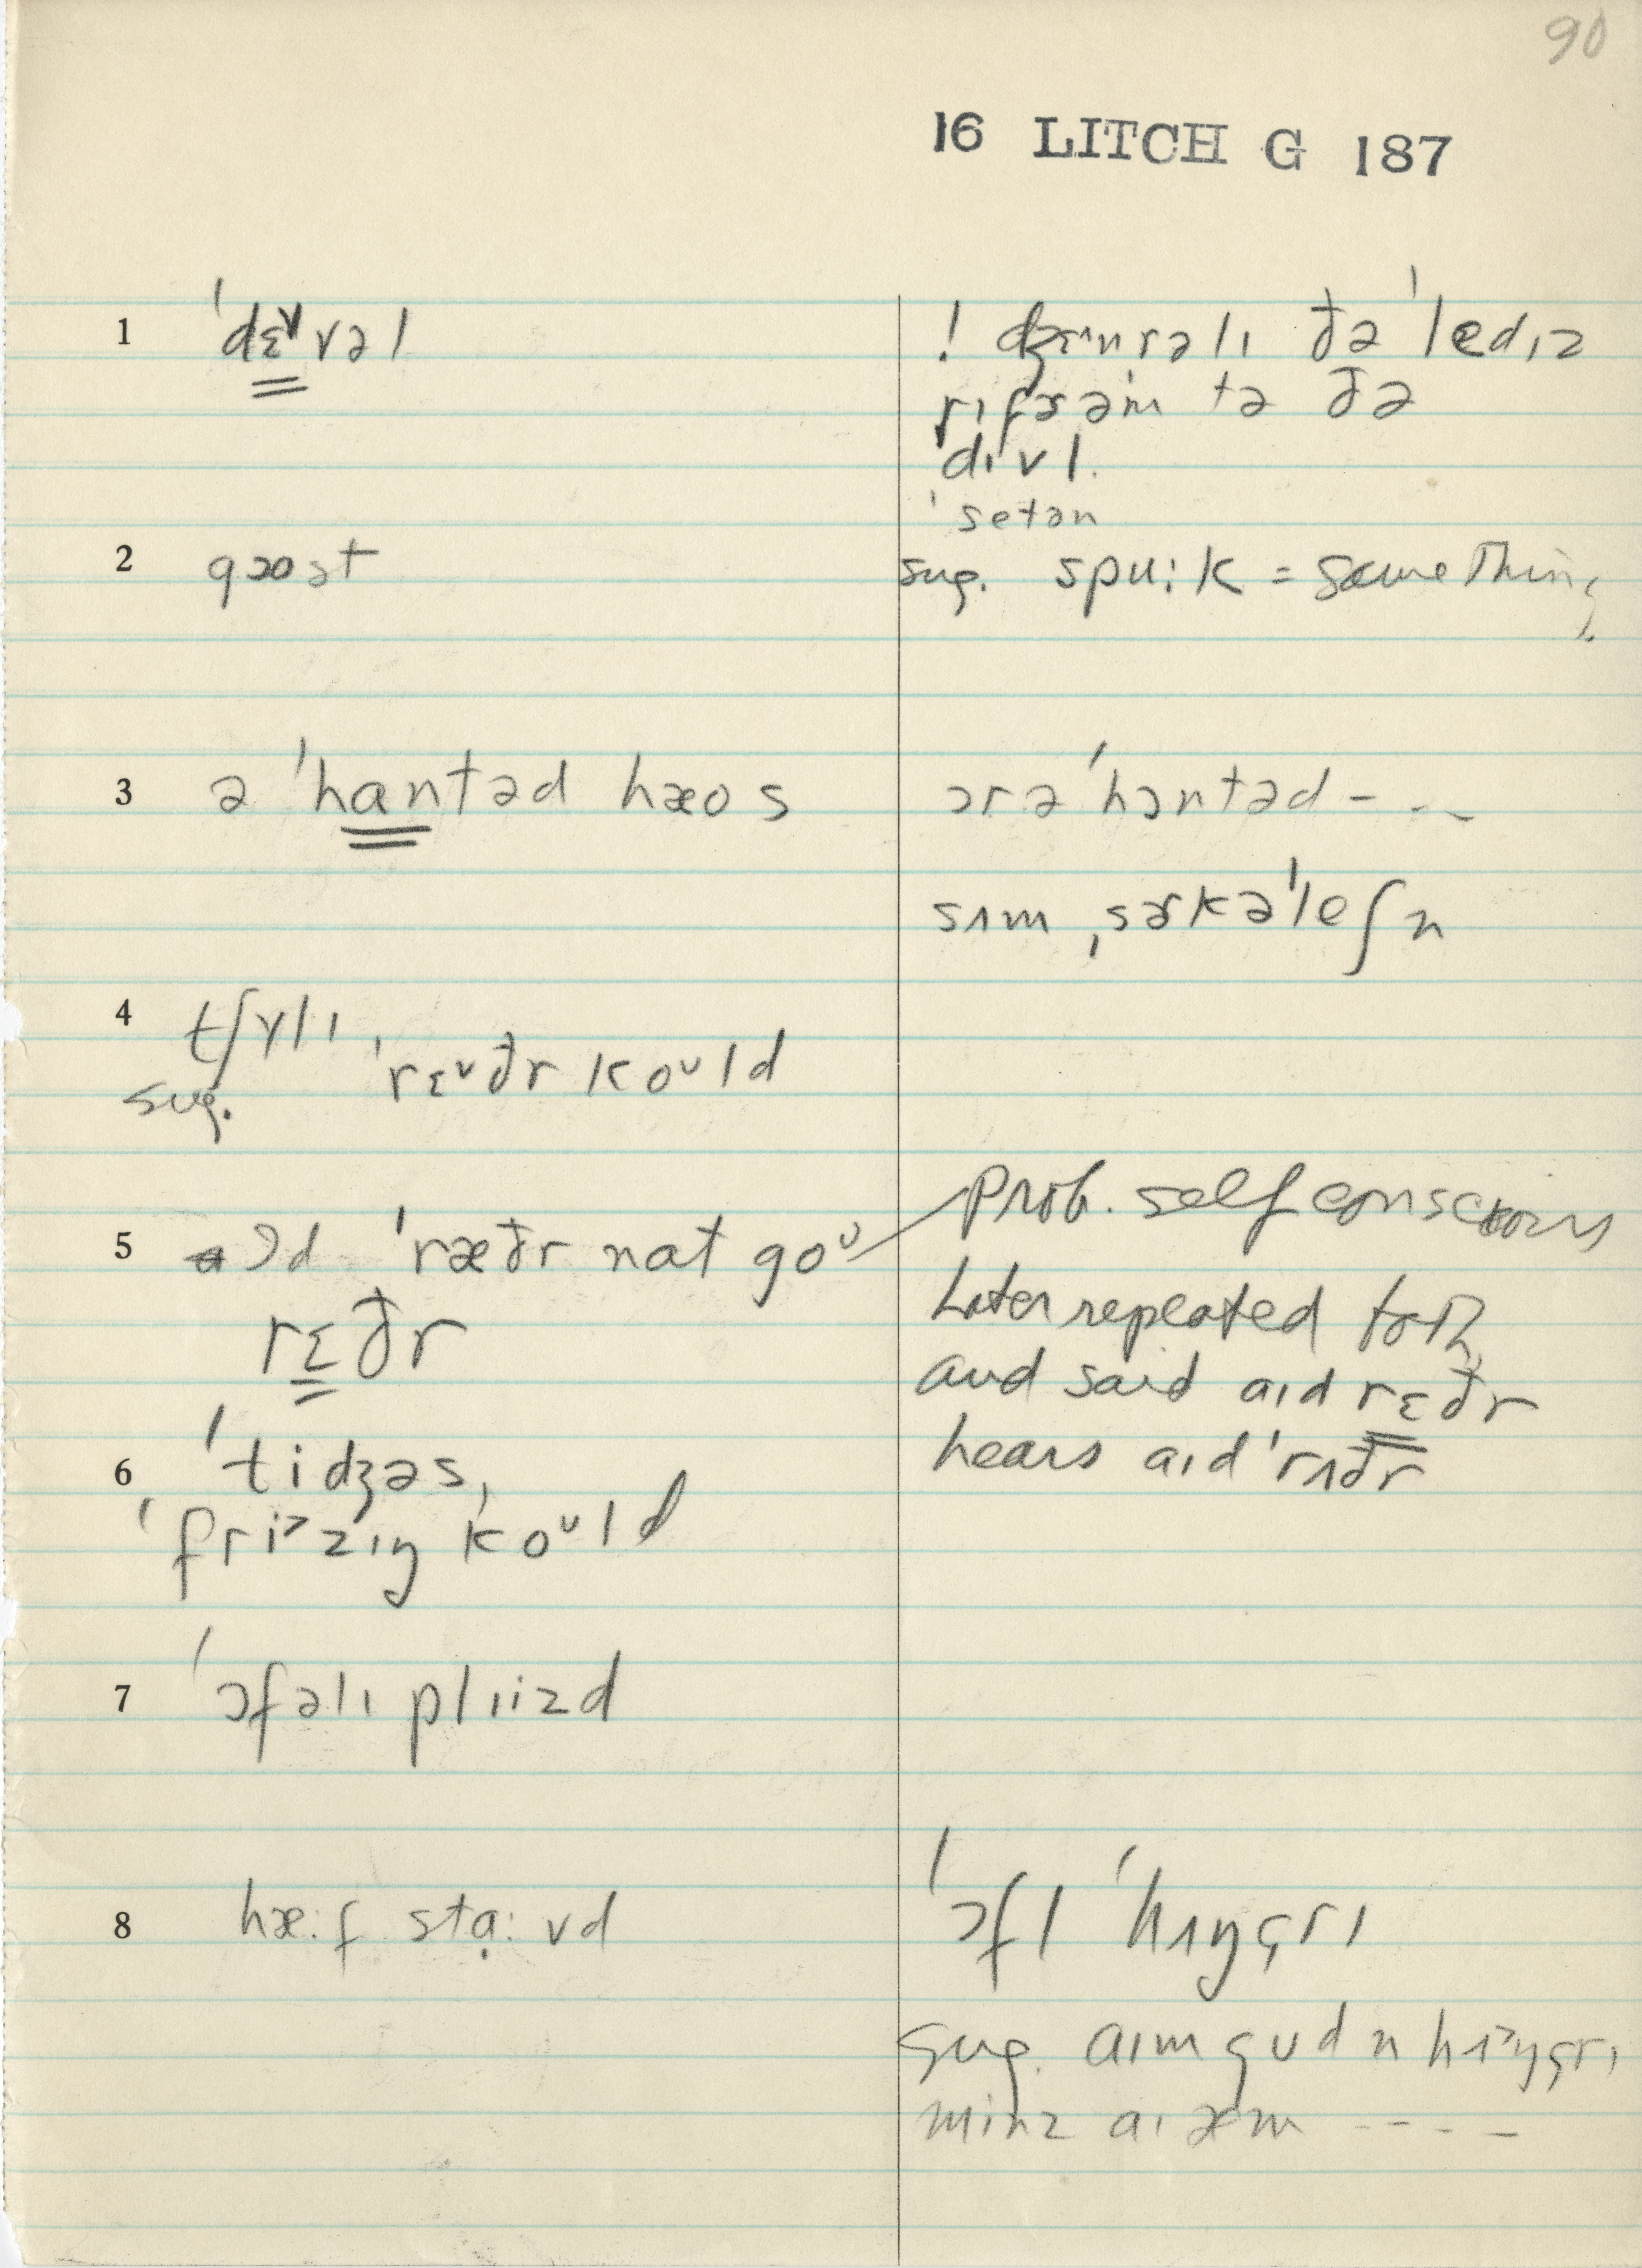 90
16 LITCH G 187
1 ˈdɛ̳ᵛvəl
! dʒɛ^nrəlɪ ðə ˈledɪz
rɪfɝ əm tə ðə
ˈdɪvl.
ˈsetən
2 goost
sug. spu:k = same Thing
3 ə ˈhan̳təd hæos
ɔr ə ˈhɔntəd - - -
sʌm ˌsɝkəˈleʃn
4 tʃɤlɪ,
sug. ˈrɛᵛðr koᵁld
5 ɔd ˈræðr nat goᵁ
Prob. self conscious
rɛ̳ðr
Later repeated to R
and said aɪd rɛ̳ðr
hears aɪd ˈrʌðr
6 ˈtidʒəs,
ˈfri˃zɪŋ koᵁld
7 ˈɔfəlɪ plɪizd
8 hæ:f stɑ̣:vd
ˈɔfl ˈhʌŋgrɪ
sug. aɪm gʊd n hʌ˃ŋgrɪ
minz aɪ æm - - - -